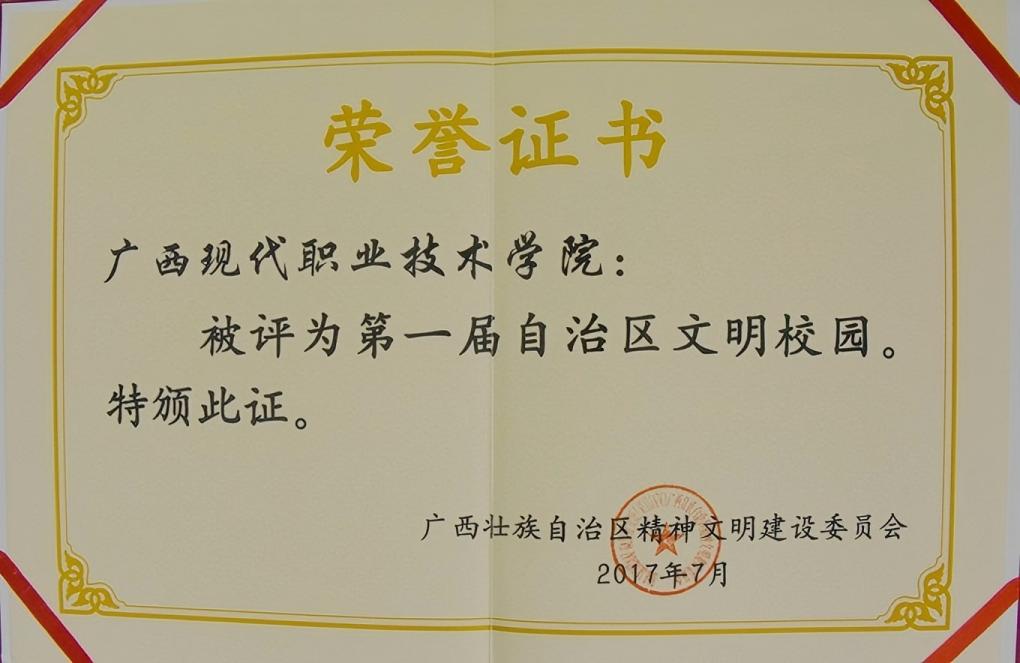 荣誉证书
广西现代职业技术学院：
被评为第一届自治区文明校园。
特颁此证。
广西壮族自治区精神文明建设委员会
2017年7月